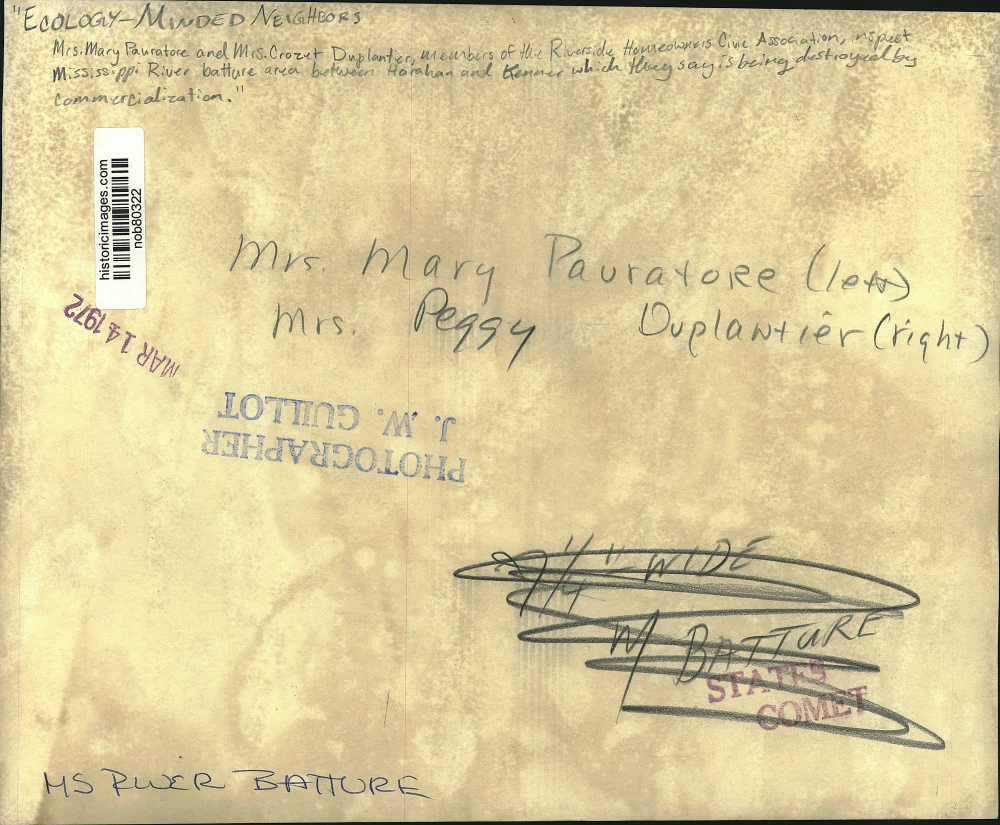 "ECOLOGY-MINDED NEIGHBORS
Mrs. Mary Pauratore and Mrs. Crozet Duplantier, members of the Riverside Homeowners Civic Association, inspect
Mississippi River batture area between Harahan and Kenner which they say is being destroyed by
commercialization."
historicimages.com
nob80322
Mrs. Mary Pauratore (left)
Mrs. Peggy Duplantier (right)
MAR 14 1972
PHOTOGRAPHER
J. W. GUILLOT
1/4" WIDE
W/ BATTURE
STATES
COMET
MS RIVER BATTURE